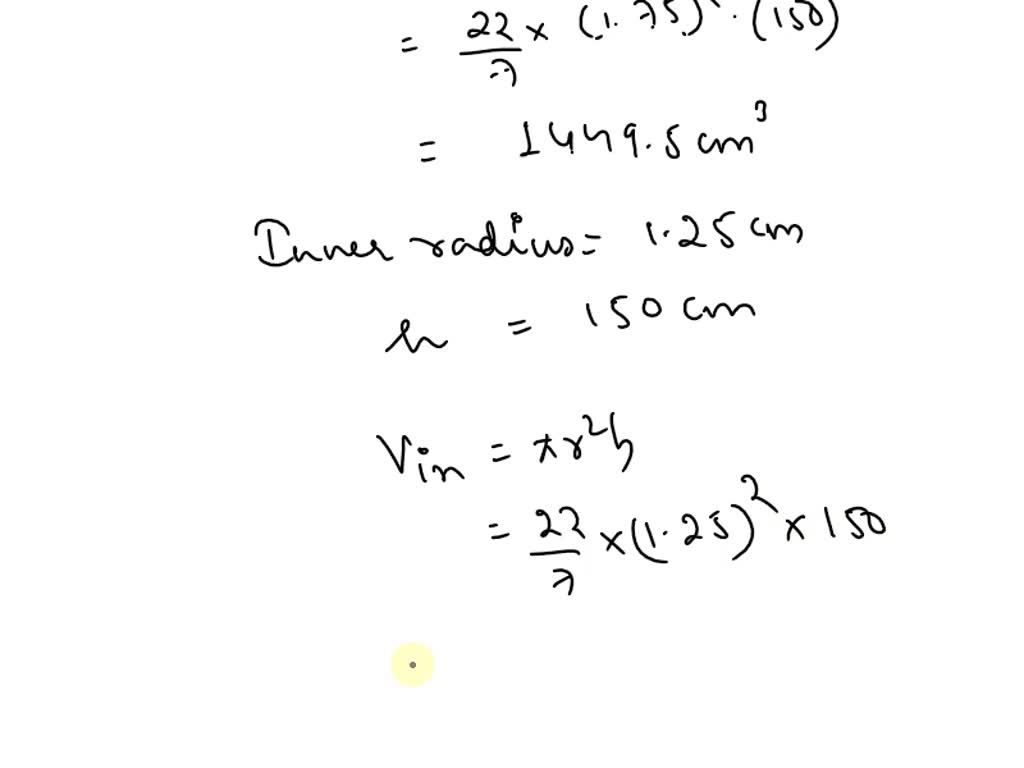 = 22/7 × (1.75)² · (150)
= 1449.5 cm³
Inner radius = 1.25 cm
h = 150 cm
Vin = πr²h
= 22/7 × (1.25)² × 150